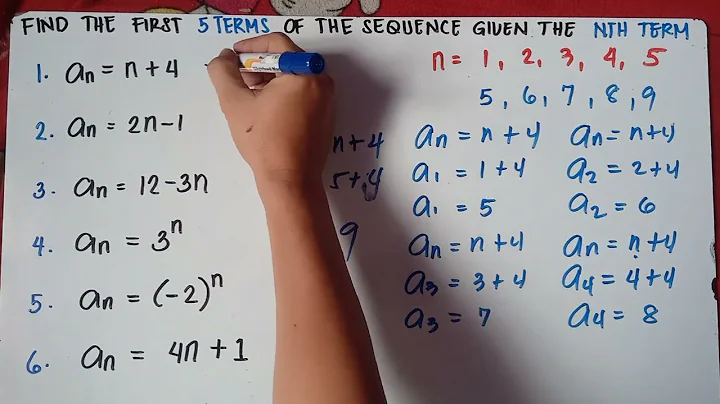 FIND THE FIRST 5 TERMS OF THE SEQUENCE GIVEN THE NTH TERM
1. an = n + 4
2. an = 2n - 1
3. an = 12 - 3n
4. an = 3ⁿ
5. an = (-2)ⁿ
6. an = 4n + 1
n = 1, 2, 3, 4, 5
5, 6, 7, 8, 9
n + 4
5 + 4
9
an = n + 4
a1 = 1 + 4
a1 = 5
an = n + 4
a3 = 3 + 4
a3 = 7
an = n + 4
a2 = 2 + 4
a2 = 6
an = n + 4
a4 = 4 + 4
a4 = 8